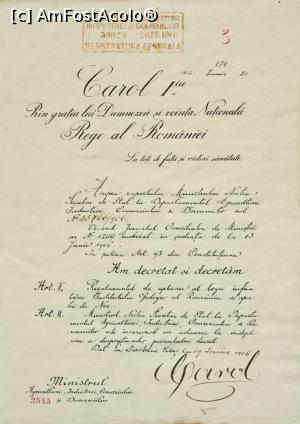 [c] AmFostAcolo®
3
REGISTRATURA GENERALA
134
Iunie 20
Carol I iu
Prin gratia lui Dumnezeu si vointa Națională
Rege al României
La toți de față și viitori sănătate.
Asupra raportului Ministrului Nostru
Secretar de Stat la Departamentul Agriculturei
Industriei, Comerciului și Domeniilor sub
Vězând Jurnalul Consiliului de Miniștri
cu No 1209 încheiat in ședința de la 13
Iunie 1906.
In puterea Art. 93 din Constituțiune
Am decretat și decretăm
Art. I. Regulamentul de aplicare al legii înfiin
țărei Institutului Geologic al României se apro
bă de Noi.
Art. II. Ministrul Nostru Secretar de Stat la Depar
tamentul Agriculturei, Industriei, Comerciului și Do
meniilor este însărcinat cu aducerea la indepli
nire a dispozițiunilor prezentului decret.
Dat in Castelul Peleș la 19 Iunie 1906
Carol
Ministrul
Agriculturei, Industriei, Comerciului
și Domeniilor
2545